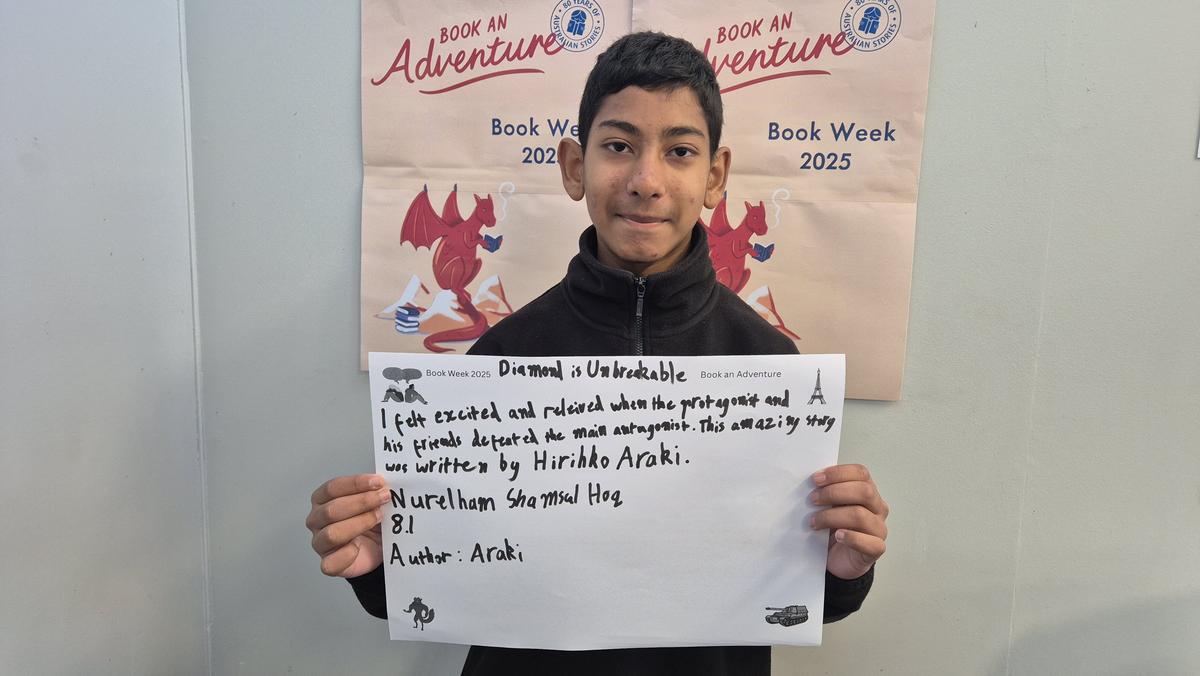 BOOK AN
Adventure
80 YEARS OF
AUSTRALIAN STORIES
Book We
202
BOOK AN
venture
80 YEARS OF
AUSTRALIAN STORIES
Book Week
2025
Book Week 2025 Diamond is Unbreakable Book an Adventure
I felt excited and releived when the protagonist and
his friends defeated the main antagonist. This amazing story
was written by Hirihko Araki.
Nurelham Shamsul Hoq
8.1
Author: Araki